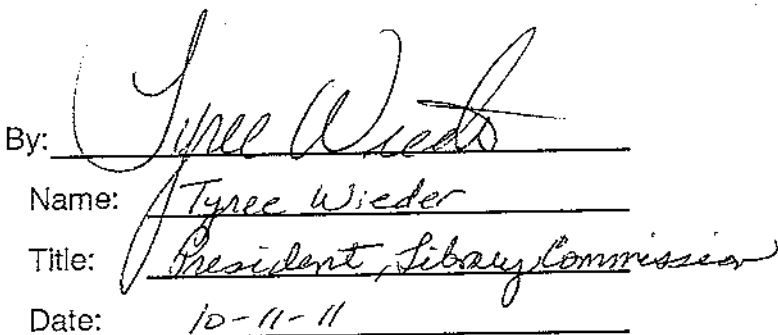 By: Tyree Wieder
Name: Tyree Wieder
Title: President, Library Commission
Date: 10-11-11